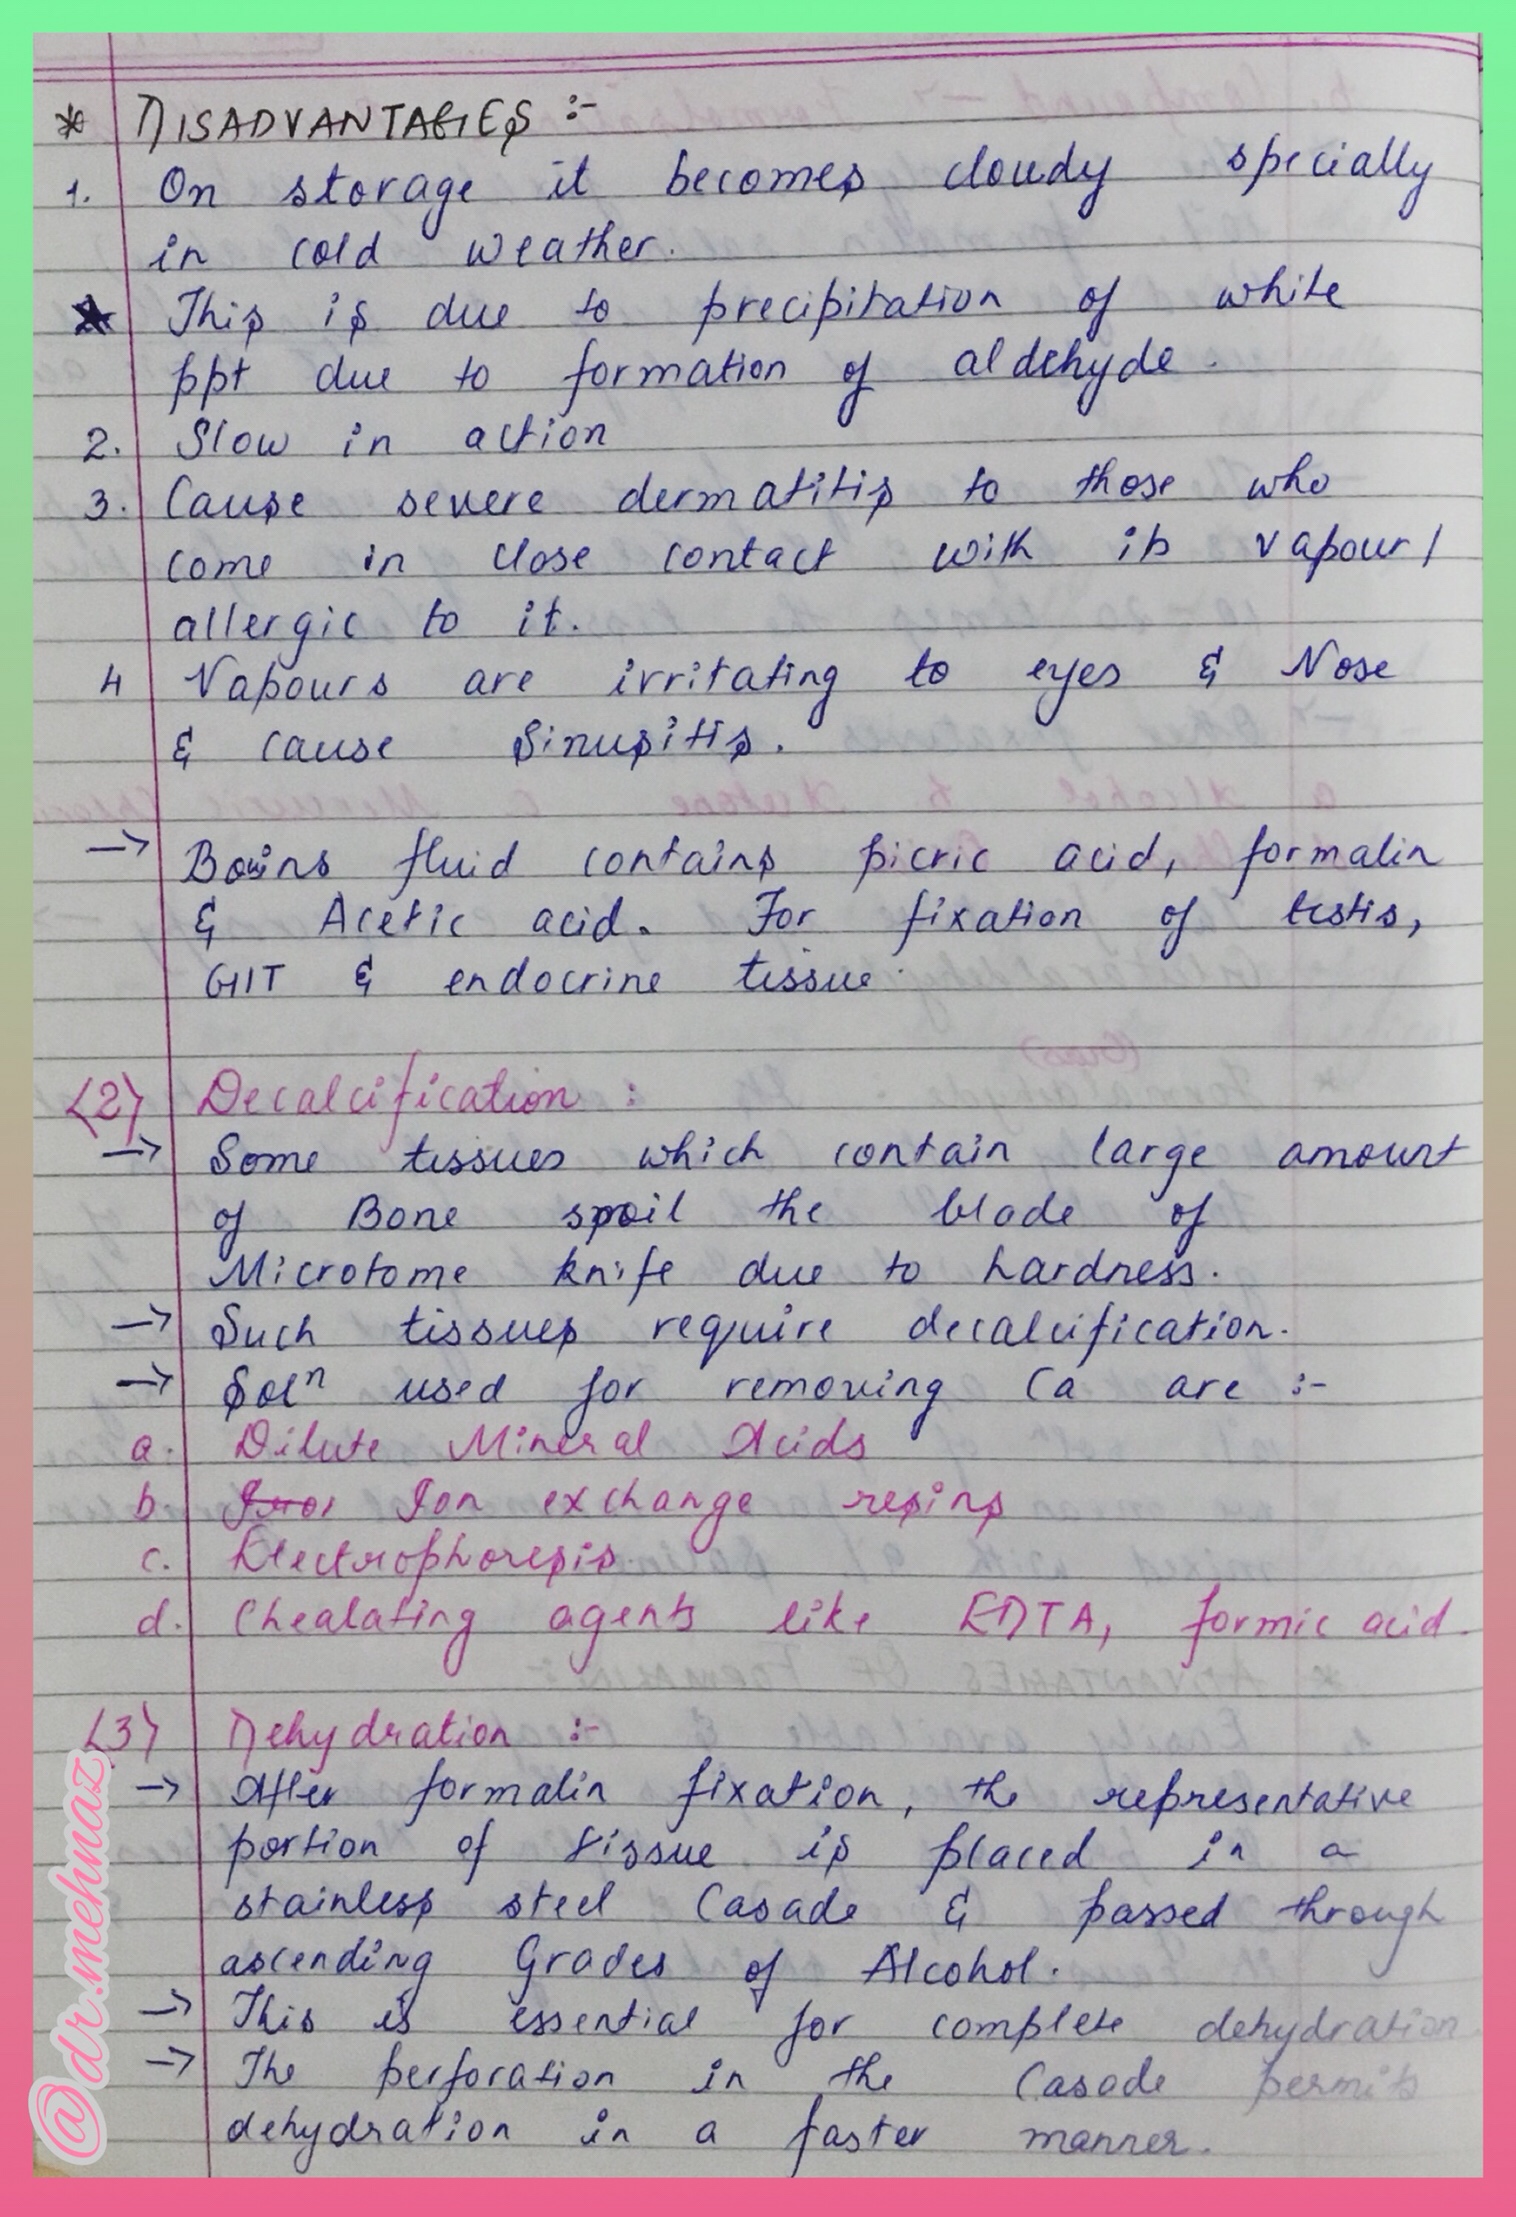 * DISADVANTAGES :-
1. On storage it becomes cloudy specially
in cold weather.
★ This is due to precipitation of white
ppt due to formation of aldehyde.
2. Slow in action
3. Cause severe dermatitis to those who
come in close contact with its vapour/
allergic to it.
4 Vapours are irritating to eyes & Nose
& cause Sinusitis.
→ Bouins fluid contains picric acid, formalin
& Acetic acid. For fixation of testis,
GIT & endocrine tissue.
<2> Decalcification :
→ Some tissues which contain large amount
of Bone spoil the blade of
Microtome knife due to hardness.
→ Such tissues require decalcification.
→ Solⁿ used for removing Ca are :-
a. Dilute Mineral Acids
b. Ion exchange resins
c. Electrophoresis.
d. Chealating agents like EDTA, formic acid.
<3> Dehydration :-
→ After formalin fixation, the representative
portion of tissue is placed in a
stainless steel Casade & passed through
ascending Grades of Alcohol.
→ This is essential for complete dehydration
→ The perforation in the Casade permits
dehydration in a faster manner.
@dr.mehnaz